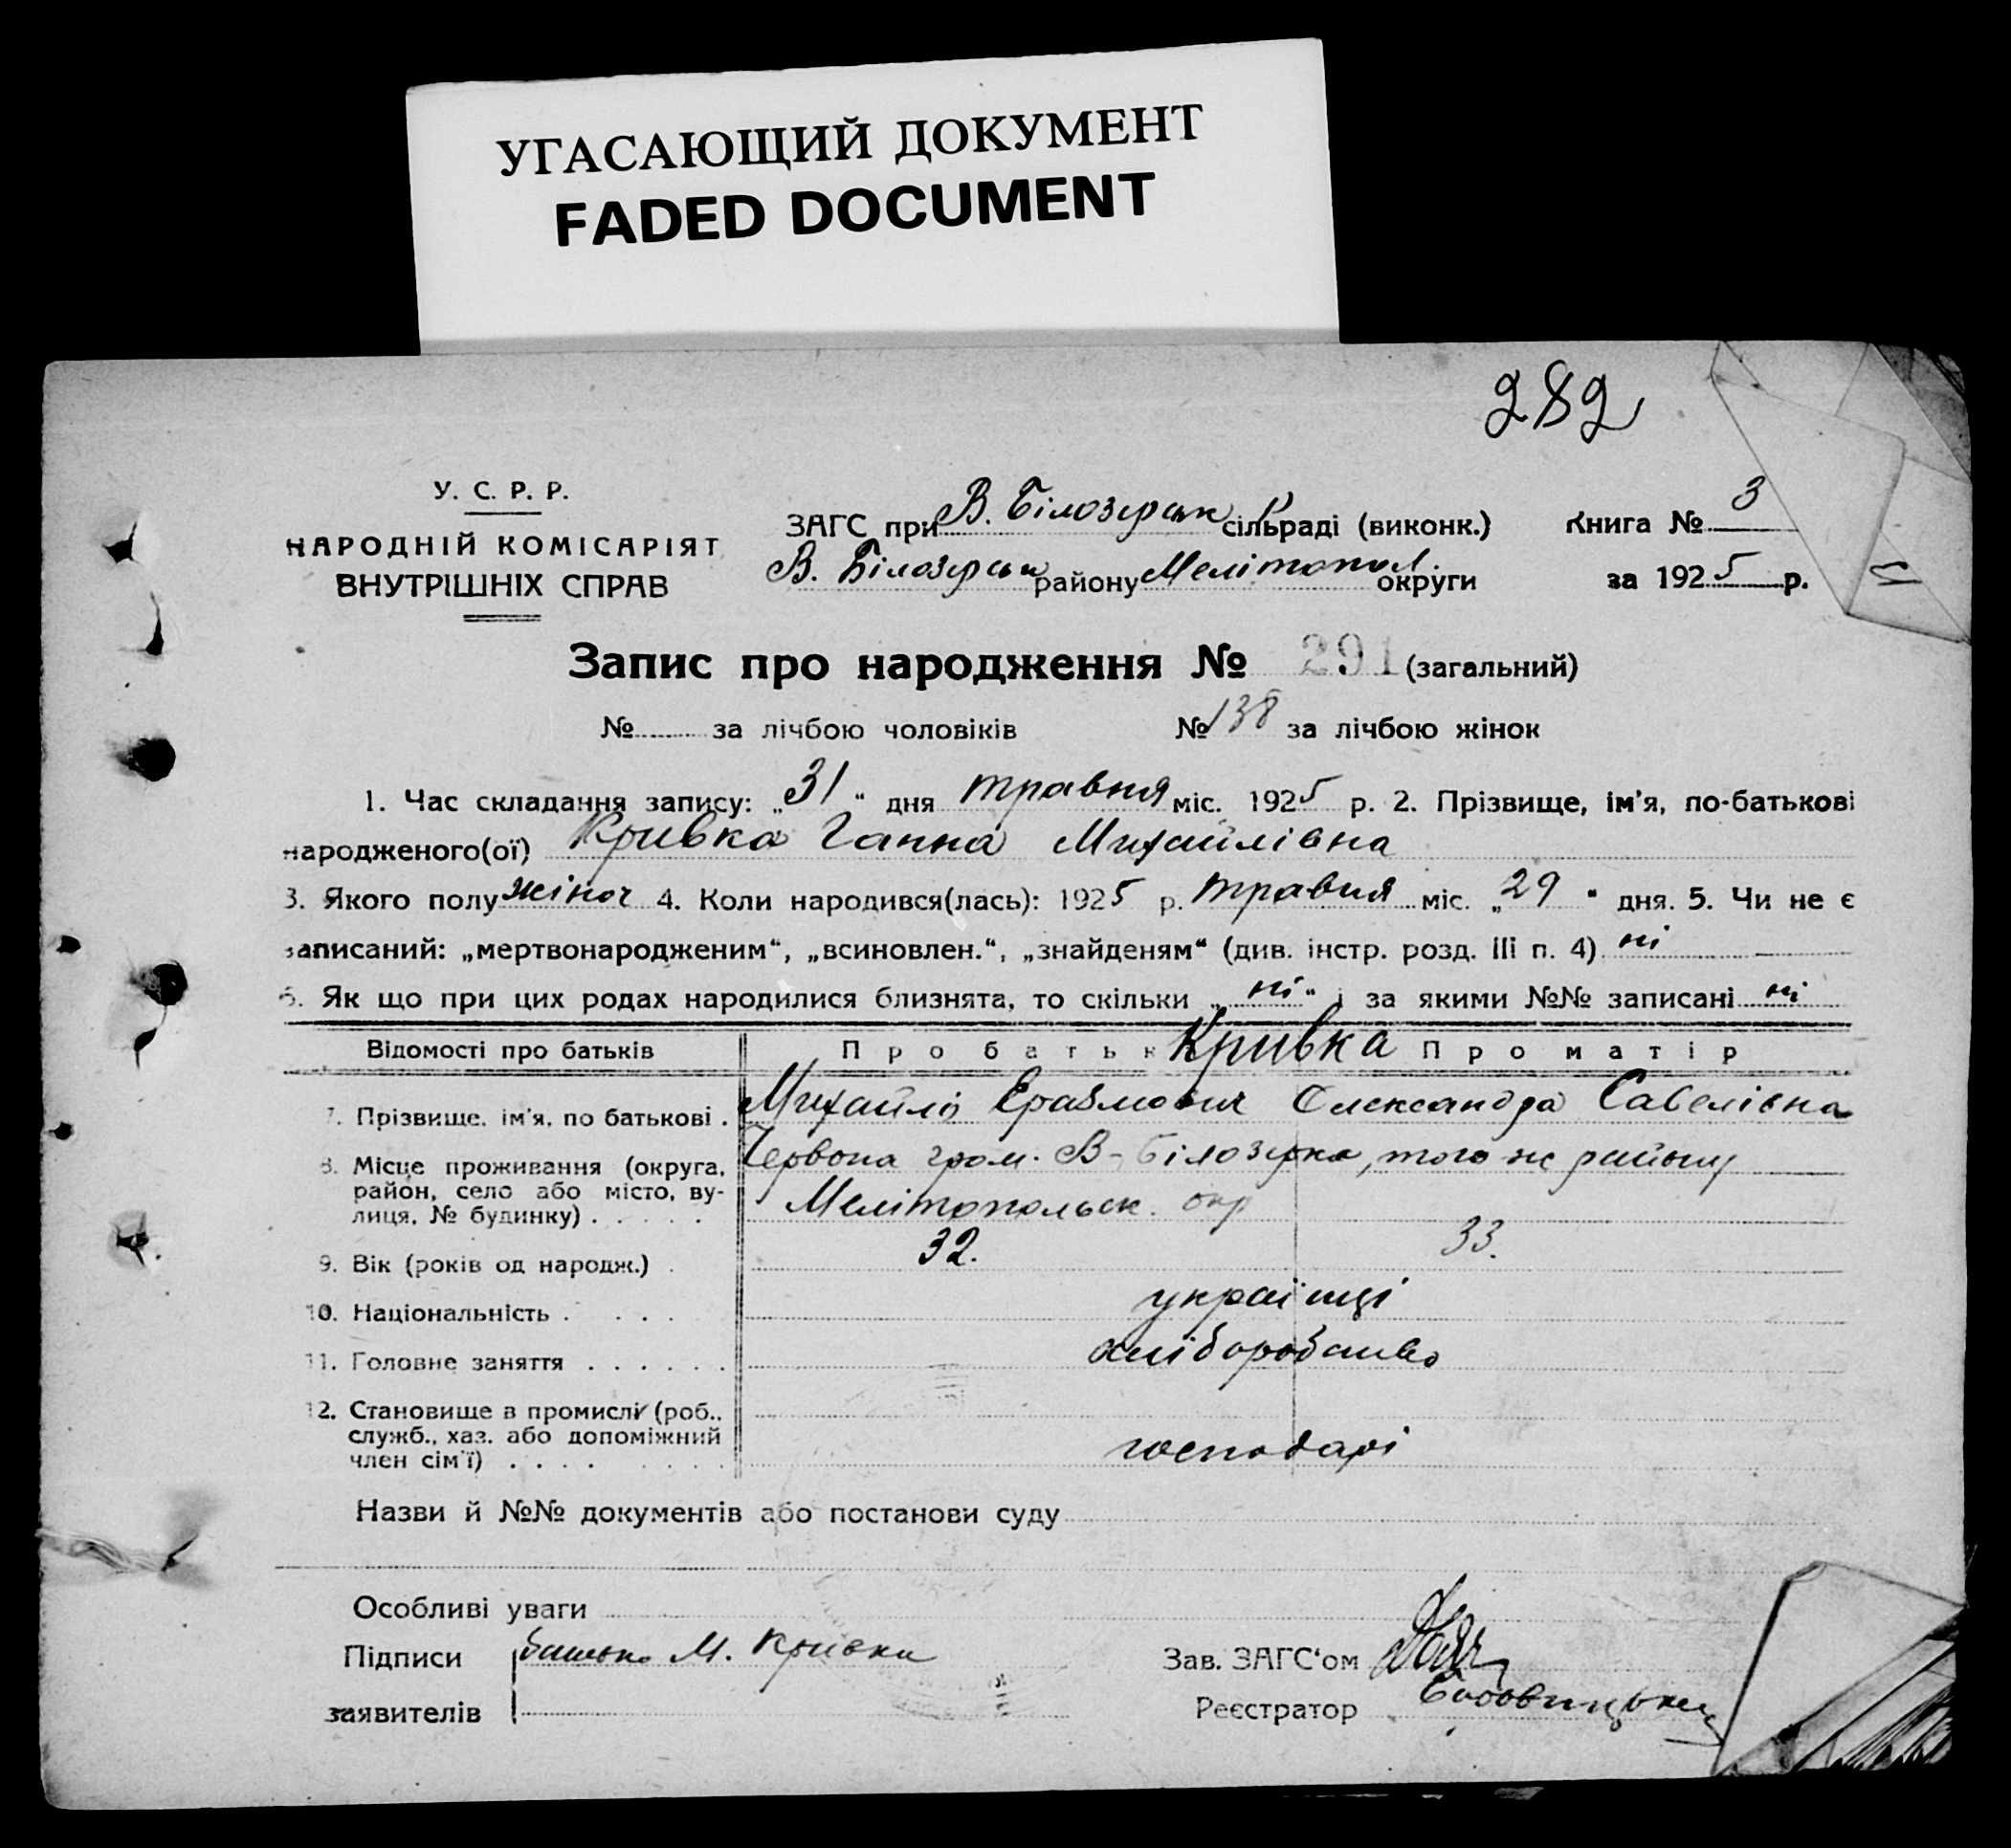 УГАСАЮЩИЙ ДОКУМЕНТ
FADED DOCUMENT
282
У. С. Р. Р.
НАРОДНІЙ КОМІСАРІЯТ
ВНУТРІШНІХ СПРАВ
ЗАГС при В. Білозерськ сільраді (виконк.) Книга № 3
В. Білозерськ району Мелітопол. округи за 1925 р.
Запис про народження № 291 (загальний)
№ за лічбою чоловіків № 138 за лічбою жінок
1. Час складання запису: „31“ дня травня міс. 1925 р. 2. Прізвище, ім'я, по-батькові
народженого(ої) Кривка Ганна Михайлівна
3. Якого полу жіноч 4. Коли народився(лась): 1925 р. травня міс. „29“ дня. 5. Чи не є
записаний: „мертвонародженим“, „всиновлен.“, „знайденям“ (див. інстр. розд. III п. 4) ні
6. Як що при цих родах народилися близнята, то скільки „ні“ і за якими №№ записані ні
Відомості про батьків Про батьк Кривка Про матір
7. Прізвище, ім'я, по батькові . Михайло Олександра Савелівна
8. Місце проживання (округа, район, село або місто, вулиця, № будинку) . . . . . Червона гром. В-Білозерка, того же району
Мелітопольськ. окр
9. Вік (років од народж.) . 32. 33.
10. Національність . . . . українці
11. Головне заняття . . . . . . хліборобство
12. Становище в промислі (роб., служб., хаз. або допоміжний член сім'ї) . . . . господарі
Назви й №№ документів або постанови суду
Особливі уваги
Підписи батько М. Кривка Зав. ЗАГС'ом
заявителів Реєстратор